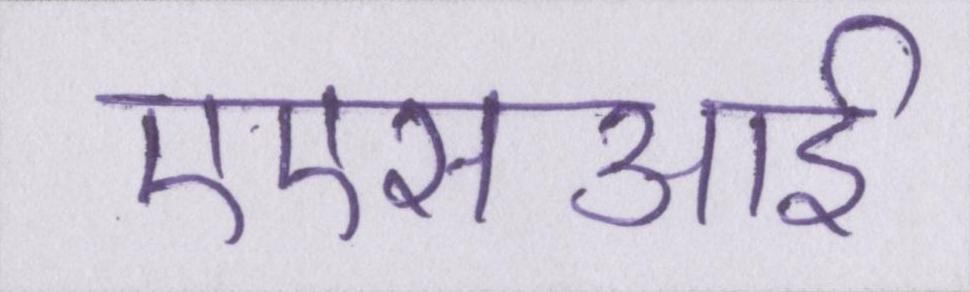 एएसआई